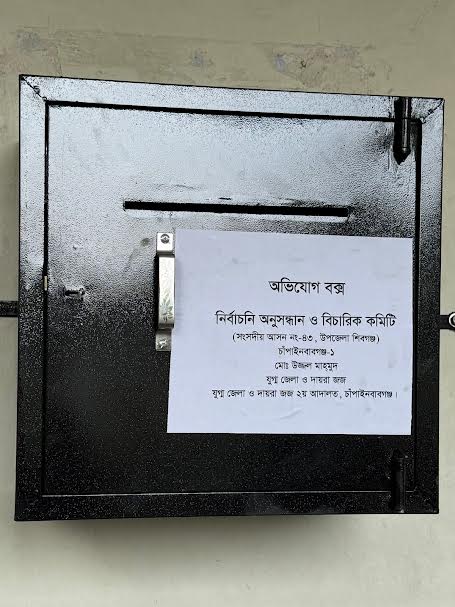 অভিযোগ বক্স
নির্বাচনি অনুসন্ধান ও বিচারিক কমিটি
(সংসদীয় আসন নং-৪৩, উপজেলা শিবগঞ্জ)
চাঁপাইনবাবগঞ্জ-১
মোঃ উজ্জল মাহ্‌মুদ
যুগ্ম জেলা ও দায়রা জজ
যুগ্ম জেলা ও দায়রা জজ ২য় আদালত, চাঁপাইনবাবগঞ্জ।